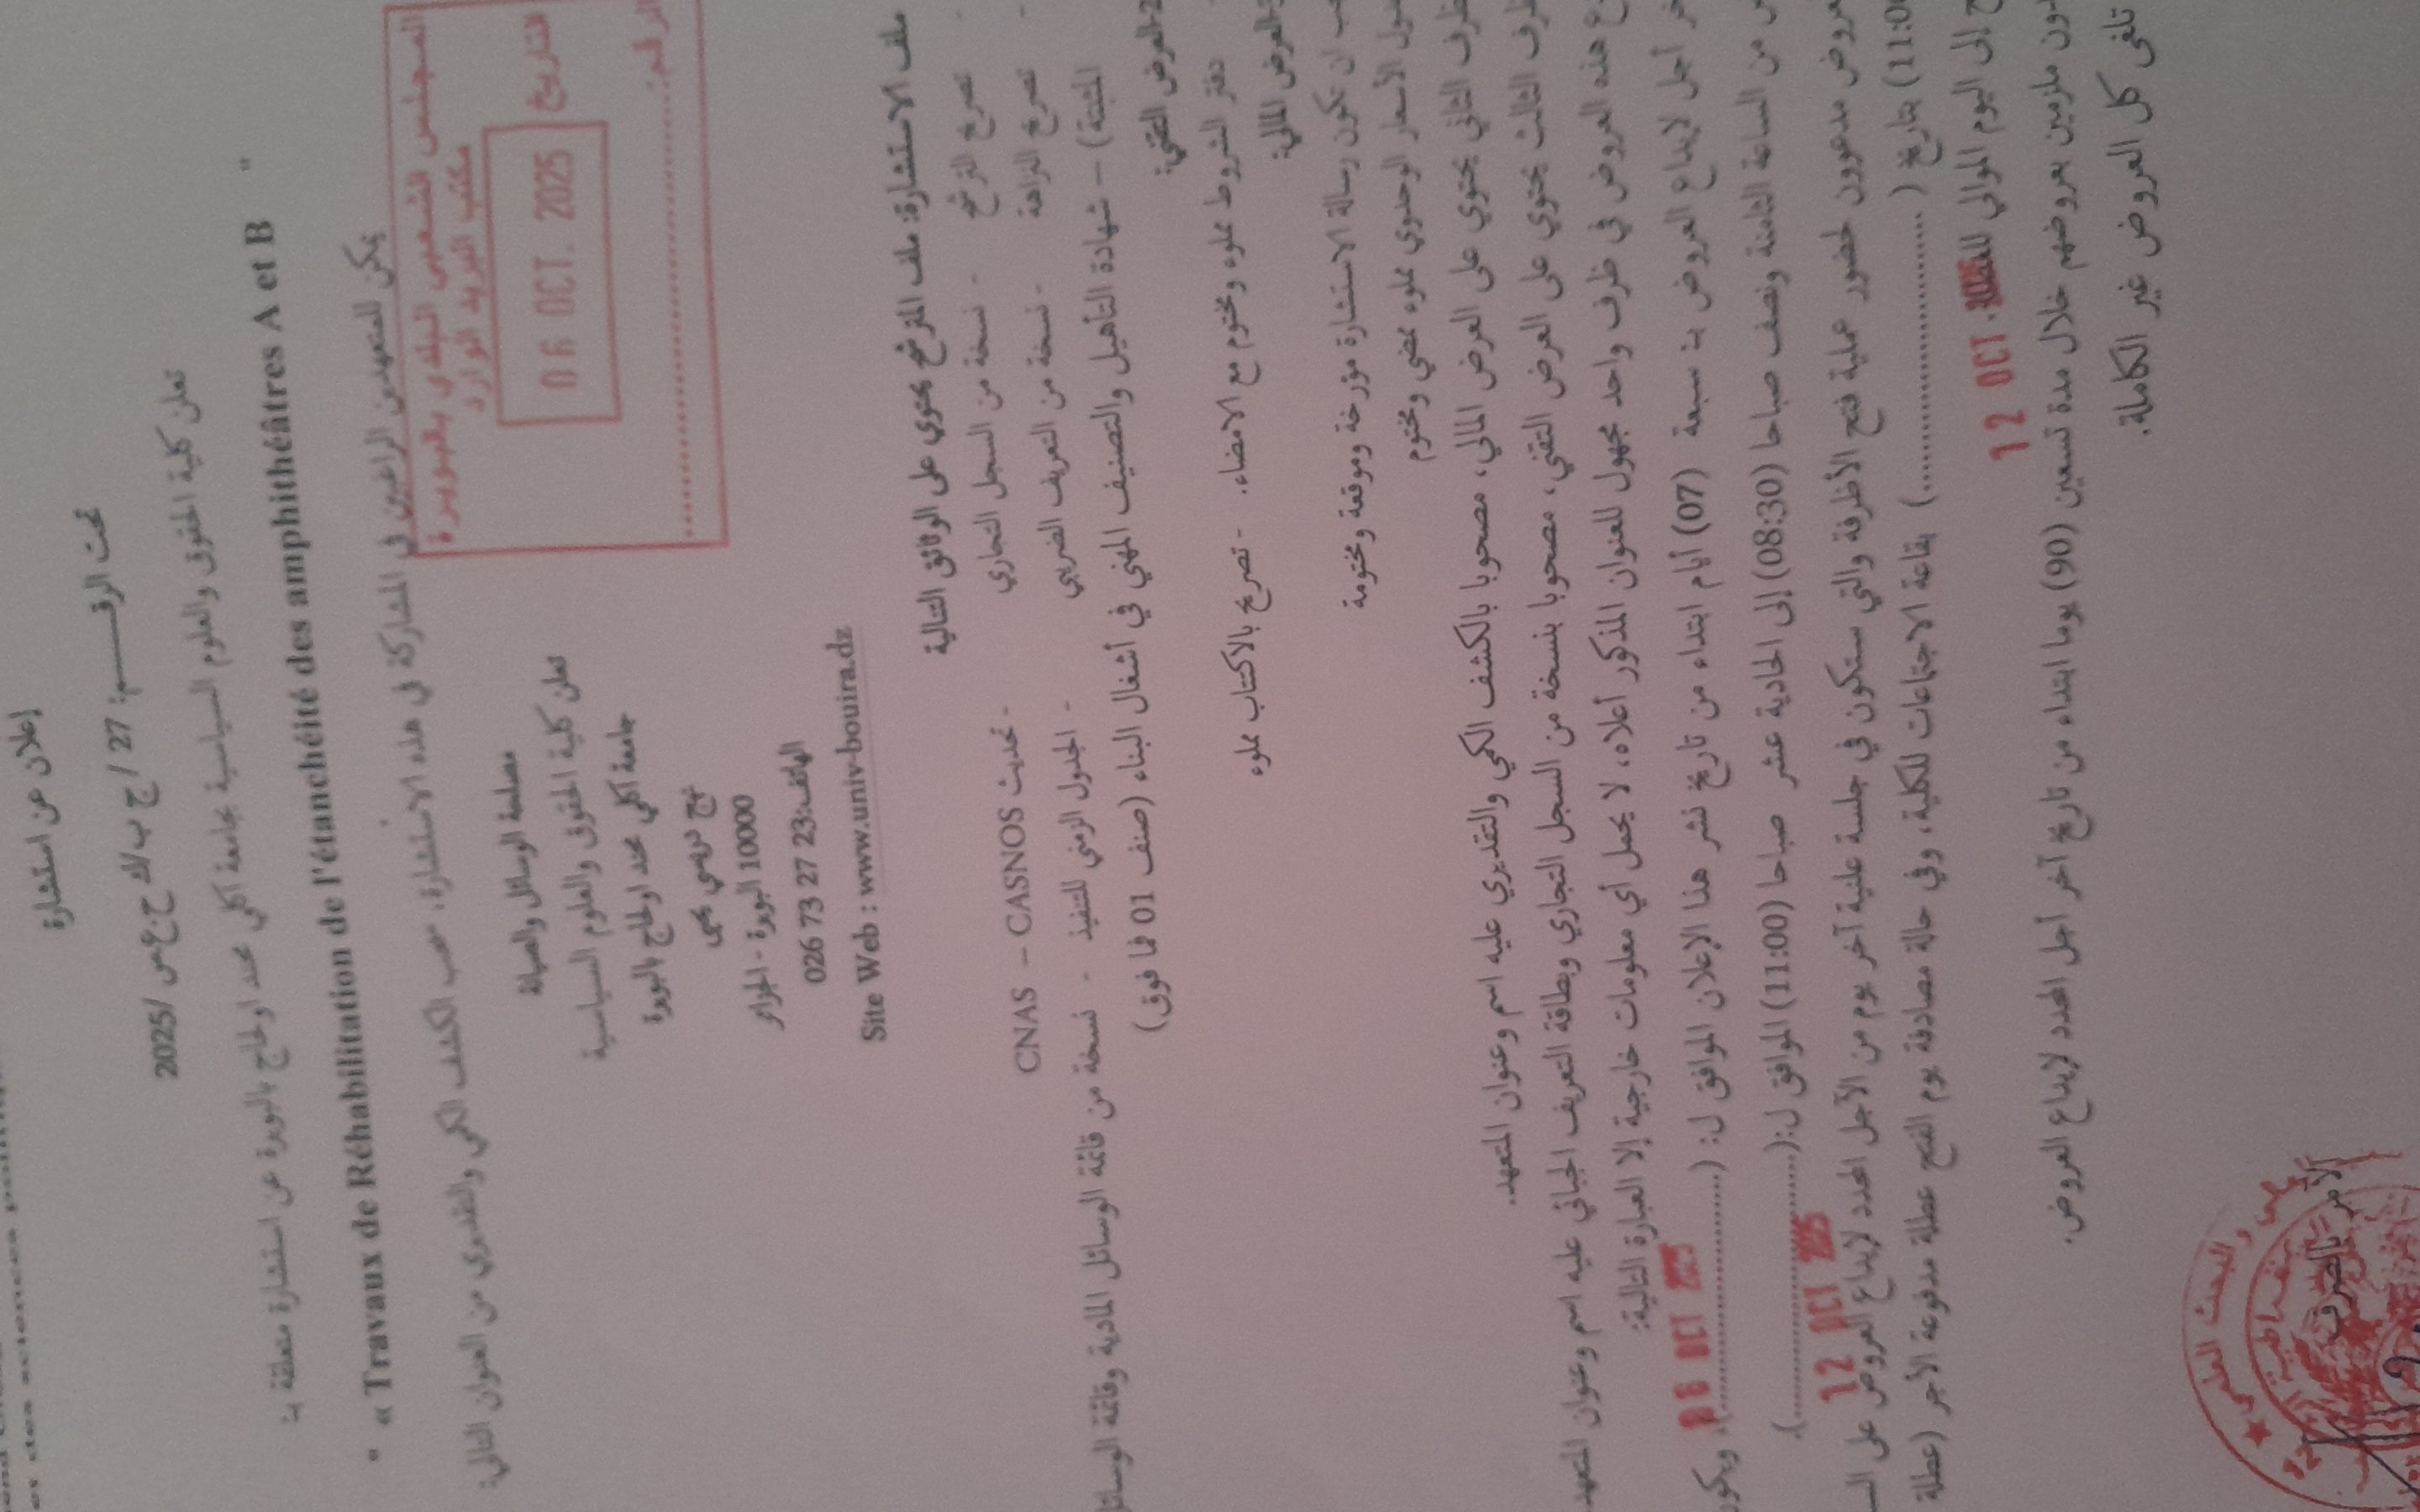 إعلان عن استشارة
تحت الرقـــــم: 27 / ج ب /ك ح ع س /2025
تعلن كلية الحقوق والعلوم السياسية بجامعة أكلي محند اولحاج بالبويرة عن استشارة متعلقة بـ:
" « Travaux de Réhabilitation de l'étanchéité des amphithéâtres A et B "
يمكن للمتعهدين الراغبين في المشاركة في هذه الاستشارة، حسب الكشف الكمي والتقديري من العنوان التالي:
المجلس الشعبي البلدي بالبويرة
مكتب البريد الوارد
التاريخ 06 OCT. 2025
الرقم:
مصلحة الوسائل والصيانة
تعلن كلية الحقوق والعلوم السياسية
جامعة أكلي محند اولحاج بالبويرة
نهج دريسي يحي
10000 البويرة - الجزائر
الهاتف:23 27 73 026
Site Web : www.univ-bouira.dz
ملف الاستشارة: ملف الترشح يحتوي على الوثائق التالية
- تصريح الترشح - نسخة من السجل التجاري - تحديث CNAS – CASNOS
- تصريح النزاهة - نسخة من التعريف الضريبي - الجدول الزمني للتنفيذ - نسخة من قائمة الوسائل المادية وقائمة الوسائل
المثبتة) – شهادة التأهيل والتصنيف المهني في أشغال البناء (صنف 01 فما فوق)
العرض التقني:
دفتر الشروط مملوء ومختوم مع الامضاء. - تصريح بالاكتتاب مملوء
العرض المالي:
ان تكون رسالة الاستشارة مؤرخة وموقعة ومختومة
الأسعار الوحدوي مملوء ممضي ومختوم
الثاني يحتوي على العرض المالي، مصحوبا بالكشف الكمي والتقديري عليه اسم وعنوان المتعهد.
الثالث يحتوي على العرض التقني، مصحوبا بنسخة من السجل التجاري وبطاقة التعريف الجبائي عليه اسم وعنوان المتعهد
هذه العروض في ظرف واحد مجهول للعنوان المذكور أعلاه، لا يحمل أي معلومات خارجية إلا العبارة التالية:
أجل لإيداع العروض بـ سبعة (07) أيام ابتداء من تاريخ نشر هذا الإعلان الموافق ل: (..............) 06 OCT 2025
من الساعة الثامنة ونصف صباحا (08:30) إلى الحادية عشر صباحا (11:00) الموافق ل:(..............). 12 OCT 2025
مدعوون لحضور عملية فتح الأظرفة والتي ستكون في جلسة علنية آخر يوم من الآجل المحدد لإيداع العروض على
(11:00) بتاريخ (..............) بقاعة الاجتماعات للكلية، وفي حالة مصادفة يوم الفتح عطلة مدفوعة الأجر (عطلة
إلى اليوم الموالي 12 OCT. 2025
ملزمين بعروضهم خلال مدة تسعين (90) يوما ابتداء من تاريخ آخر أجل المحدد لإيداع العروض.
تلغى كل العروض غير الكاملة.
الآمر بالصرف
والبحث العلمي